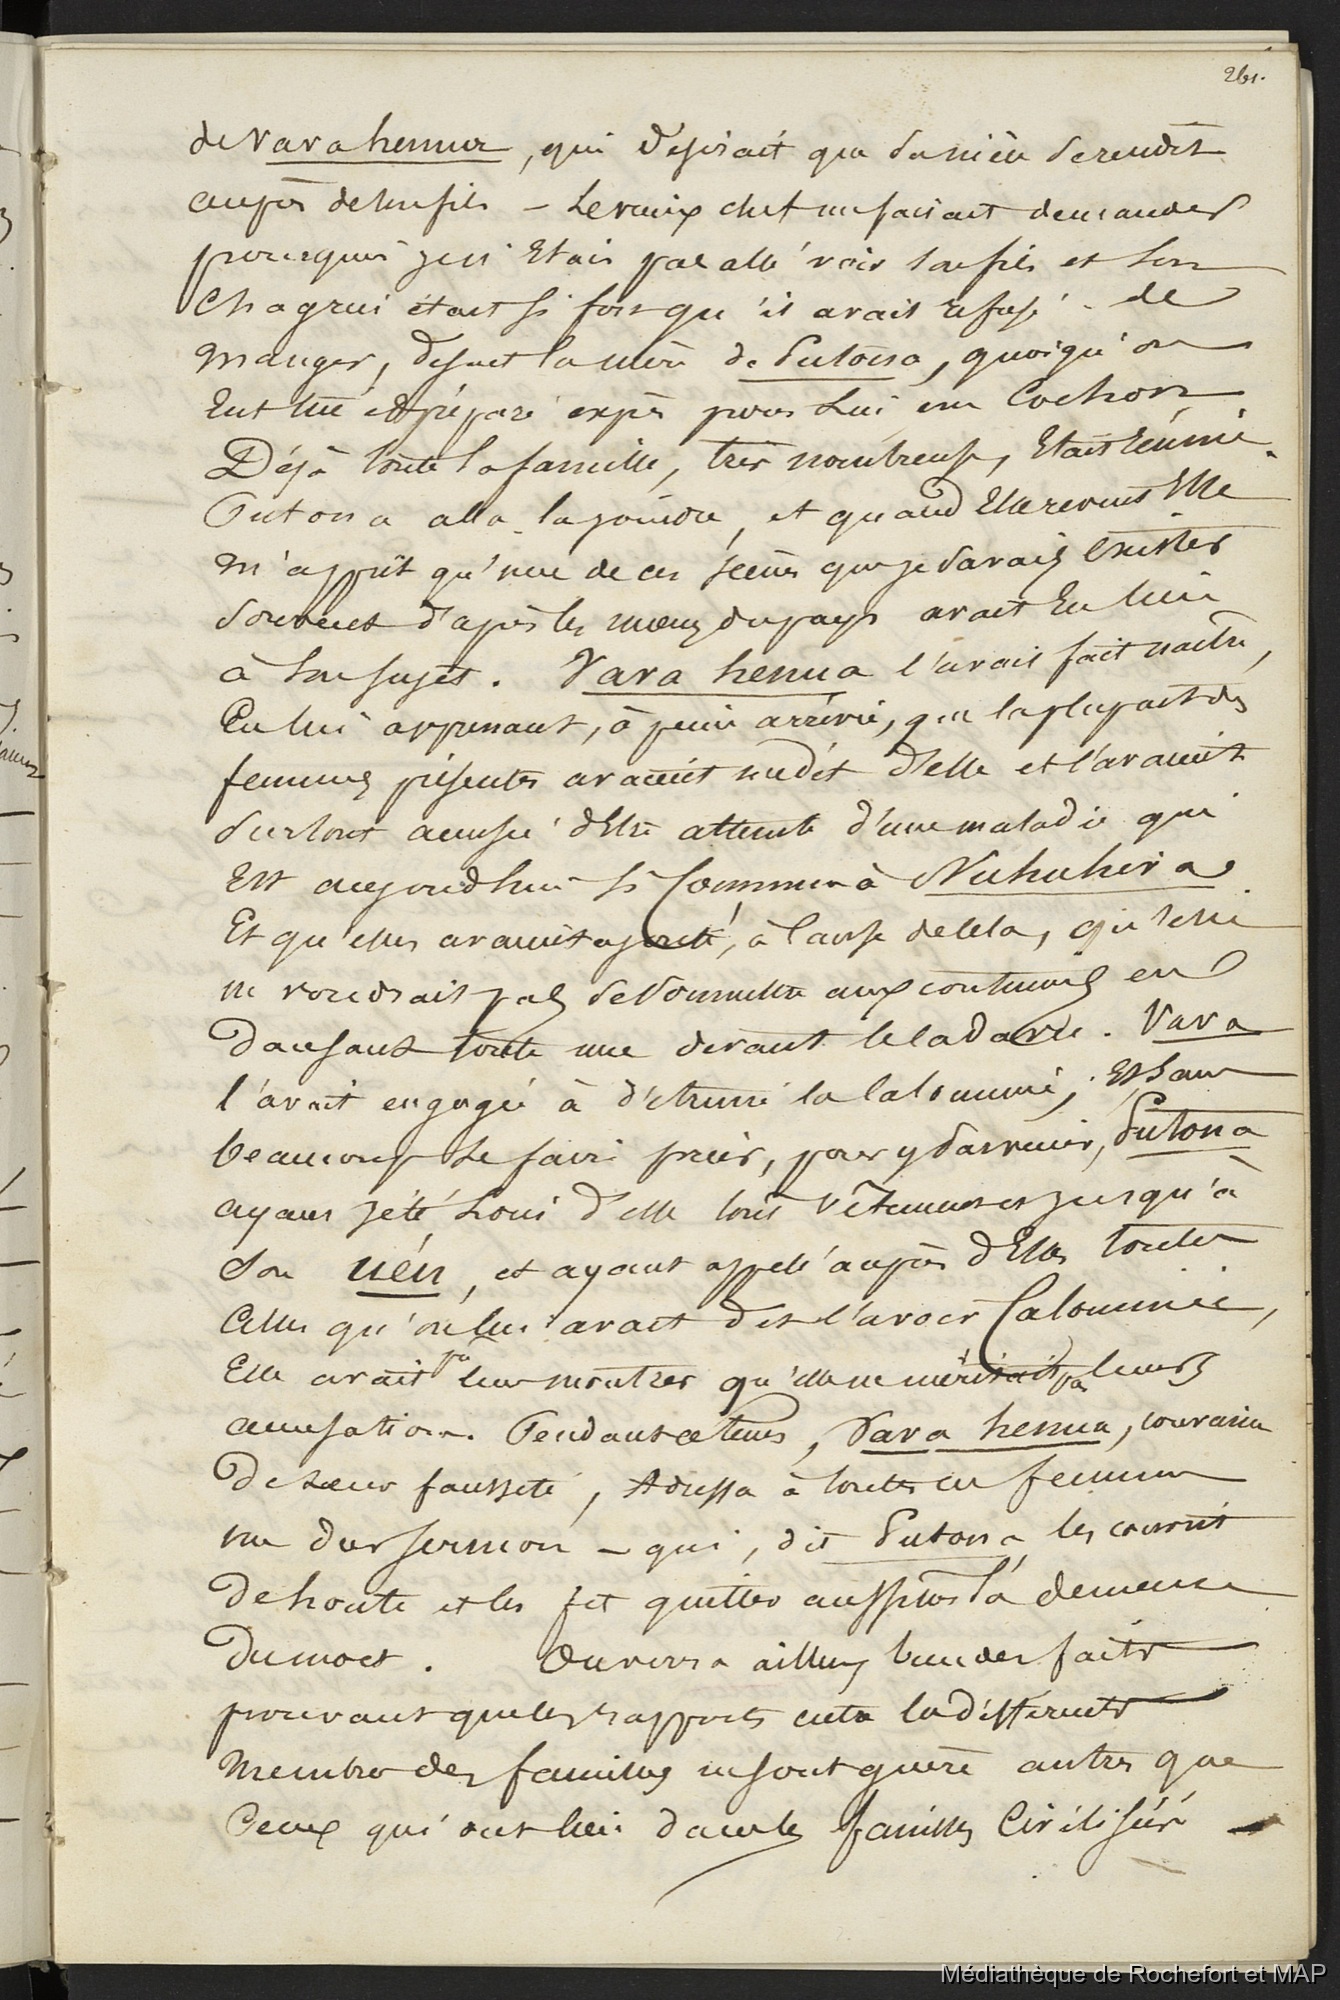 261.
de Vavahenua, qui desirait que sa nièce se rendit
auprès de son fils – Le vieux chef me faisait demander
pourquoi je n'étais pas allé voir son fils et son
chagrin était si fort qu'il avait refusé de
manger, disait la mère de Putona, quoiqu'on
eut tué et préparé exprès pour lui un cochon
Déjà toute la famille, très nombreuse, était réunie.
Putona alla la joindre, et quand elle revint elle
m'apprit qu'une de ces scènes que je savais exister
souvent d'après les mœurs du pays avait eu lieu
à son sujet. Vavahenua l'avait fait naître,
en lui apprenant, à peine arrivée, que la plupart des
femmes présentes avaient médit d'elle et l'avaient
surtout accusée d'être atteinte d'une maladie qui
est aujourd'hui si commune à Nukuhiva
et qu'elles avaient ajouté, à cause de cela, qu'elle
ne voudrait pas se soumettre aux coutumes en
dansant toute nue devant le cadavre. Vava
l'avait engagée à détruire la calomnie; et sans
beaucoup se faire prier, pour y parvenir, Putona
ayant jeté loin d'elle tous vêtements jusqu'à
son uéu, et ayant appelé auprès d'elle toutes
celles qu'on lui avait dit l'avoir calomniée,
elle avait pu leur montrer qu'elle ne méritait pas leurs
accusations. Pendant ce tems, Vavahenua, convaincu
de leur fausseté, adressa à toutes ces femmes
un dur sermon – qui, dit Putona les couvrit
de honte et les fit quitter aussitôt la demeure
du mort. On verra ailleurs bien des faits
prouvant que les rapports entre les différents
membres des familles ne sont guère autres que
ceux qui ont lieu dans les familles civilisées –
Médiathèque de Rochefort et MAP